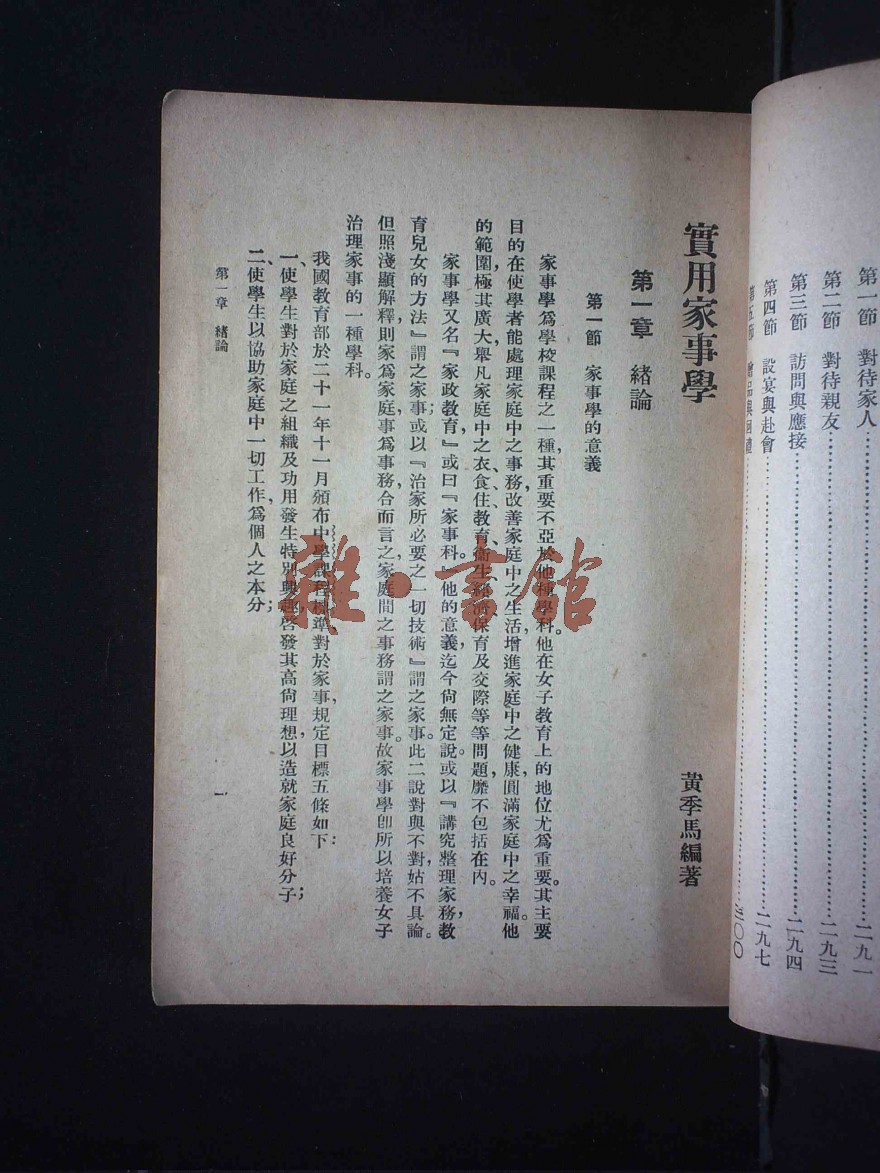 第一節　對待家人…………二九一
第二節　對待親友…………二九三
第三節　訪問與應接…………二九四
第四節　設宴與赴會…………二九七
第五節　…………三〇〇
實用家事學
黃季馬編著
第一章　緒論
第一節　家事學的意義
家事學爲學校課程之一種，其重要不亞於他種學科。他在女子教育上的地位尤爲重要。其主要
目的在使學者能處理家庭中之事務，改善家庭中之生活，增進家庭中之健康，圓滿家庭中之幸福。他
的範圍極其廣大，舉凡家庭中之衣、食、住、教育、衞生、經濟、保育及交際等等問題，靡不包括在內。
家事學又名『家政教育』或曰『家事科。』他的意義，迄今尙無定說。或以『講究整理家務，教
育兒女的方法』謂之家事；或以『治家所必要之一切技術』謂之家事。此二說對與不對，姑不具論。
但照淺顯解釋，則家爲家庭，事爲事務，合而言之，家庭間之事務謂之家事。故家事學卽所以培養女子
治理家事的一種學科。
我國教育部於二十一年十一月頒布中學課程標準，對於家事，規定目標五條如下：
一、使學生對於家庭之組織及功用發生特別興趣，啓發其高尙理想，以造就家庭良好分子；
二、使學生以協助家庭中一切工作，爲個人之本分；
第一章　緒論
一
雜·書館